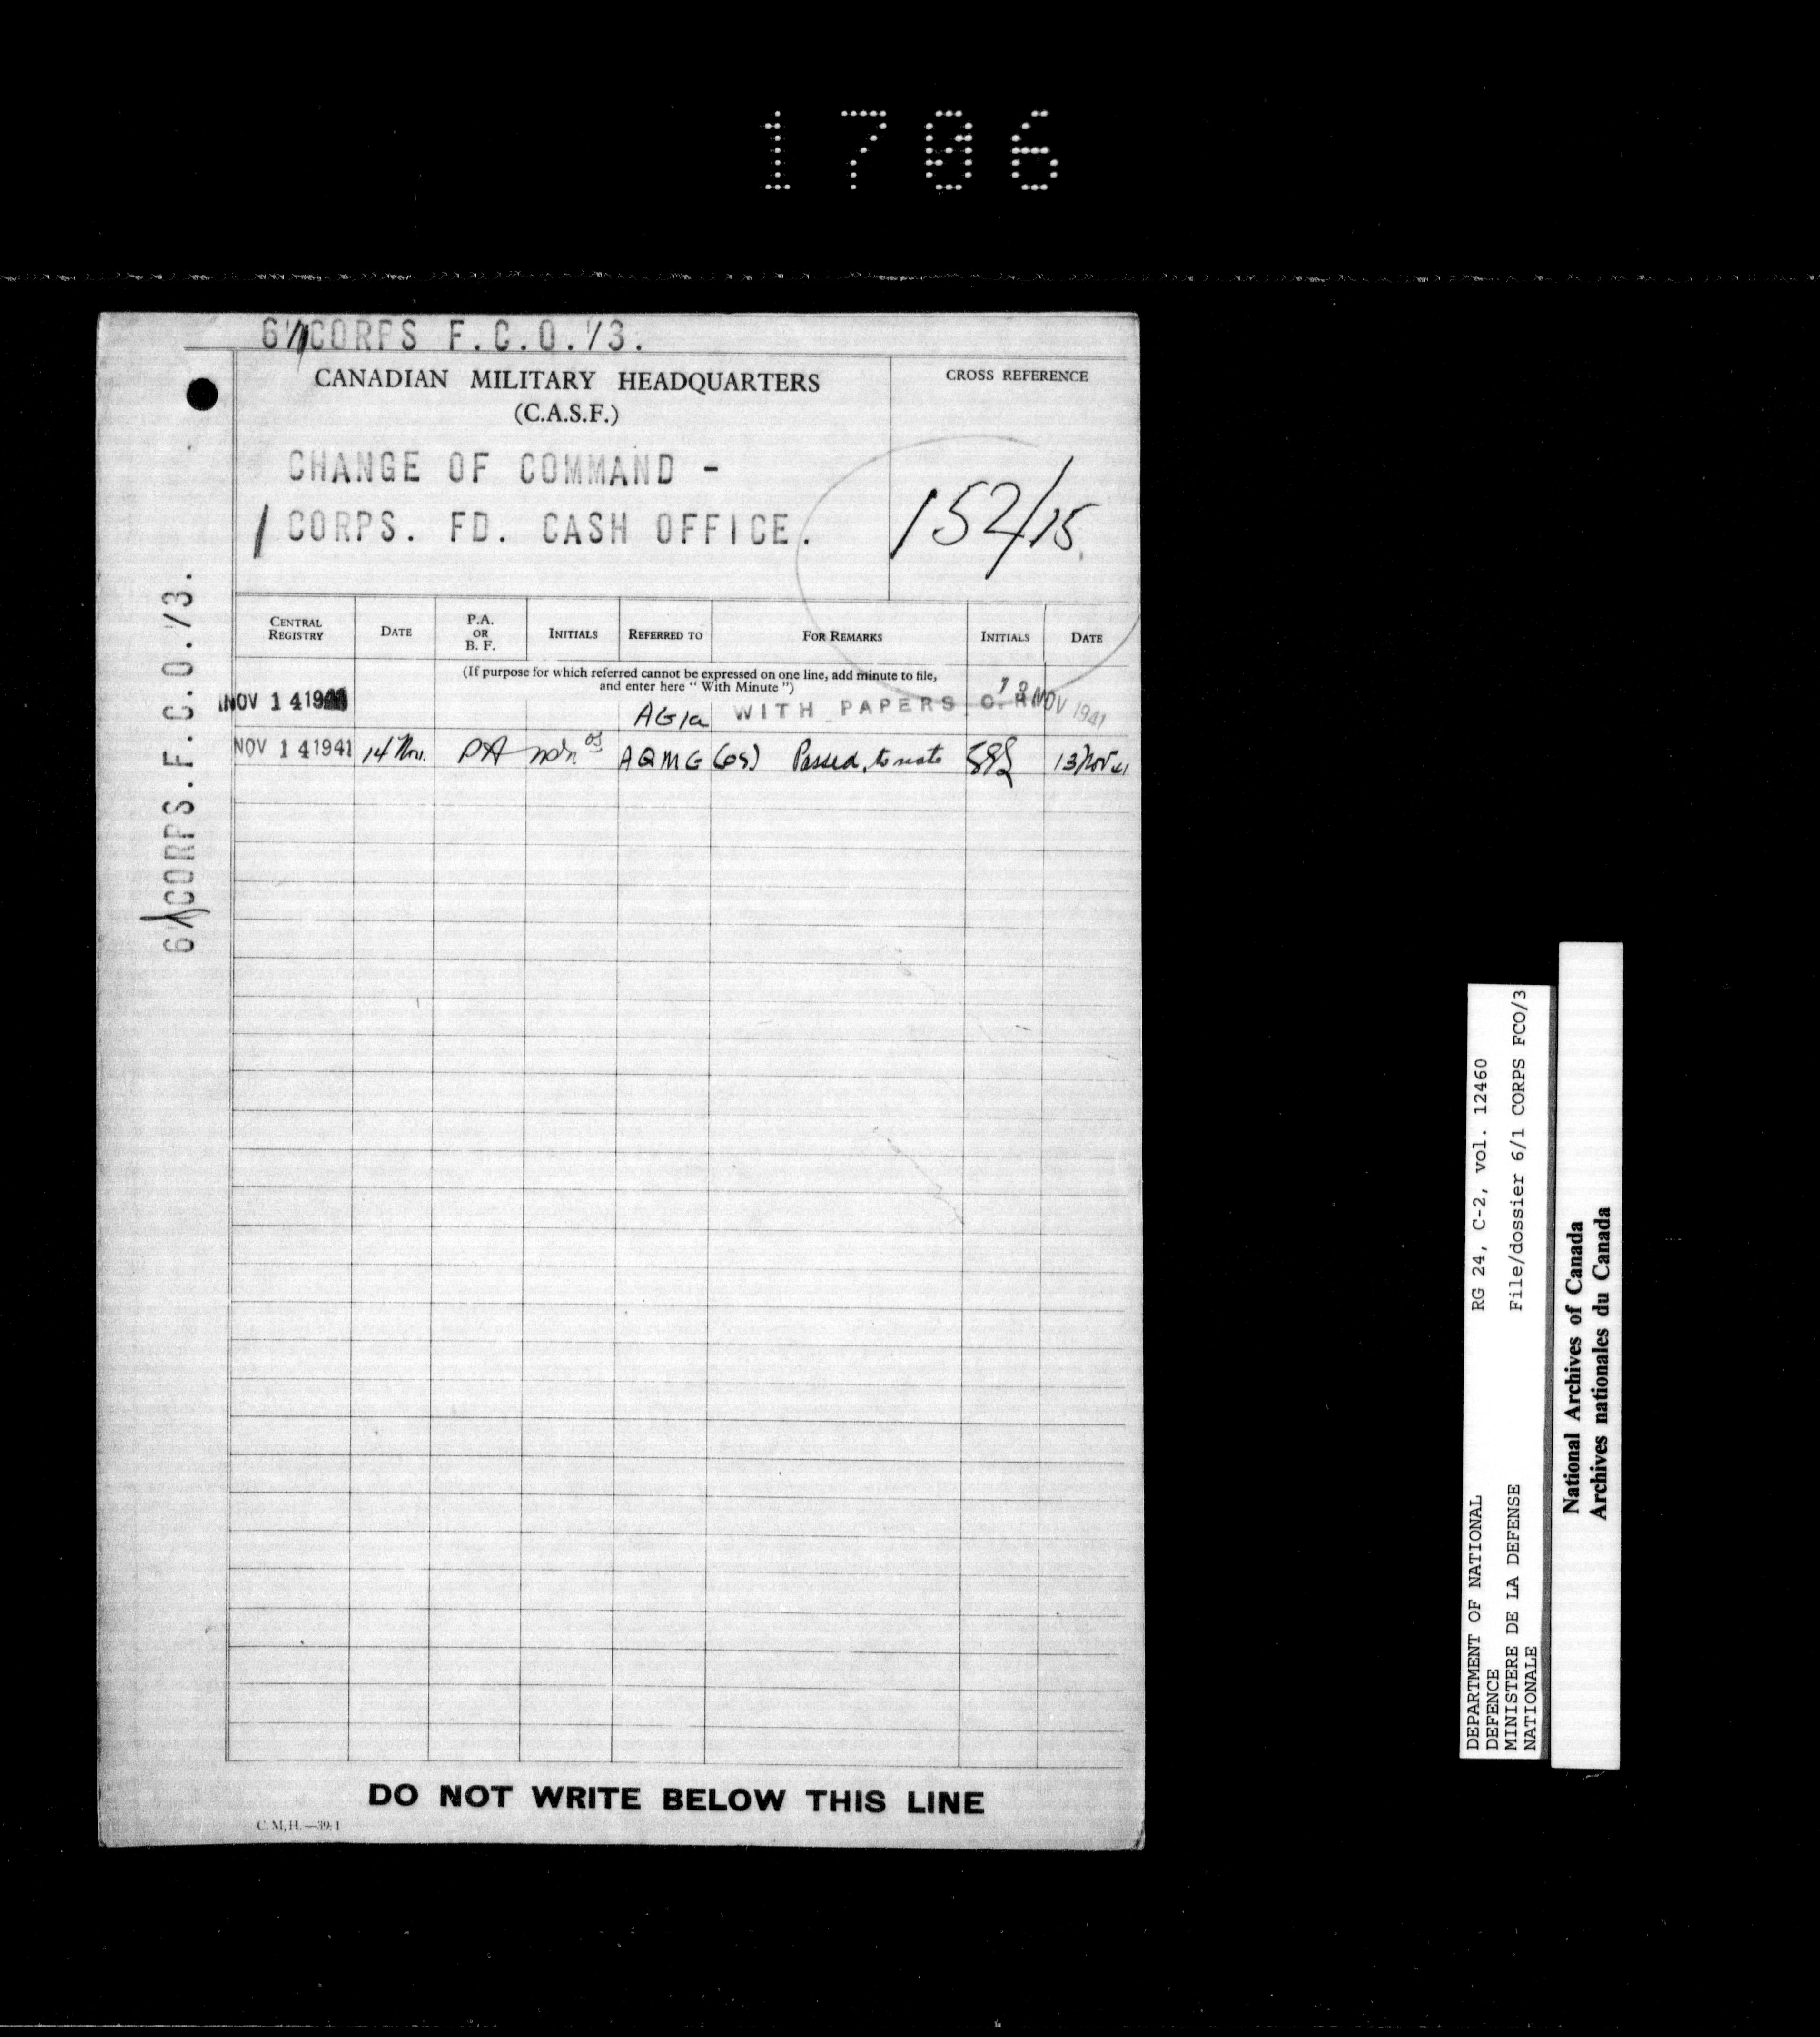 1706
6/1 CORPS F.C.O./3.
CANADIAN MILITARY HEADQUARTERS
(C.A.S.F.)
CROSS REFERENCE
CHANGE OF COMMAND -
1 CORPS. FD. CASH OFFICE.
152/15
6/1 CORPS.F.C.O./3.
CENTRAL REGISTRY DATE P.A. OR B. F. INITIALS REFERRED TO FOR REMARKS INITIALS DATE
(If purpose for which referred cannot be expressed on one line, add minute to file,
and enter here “ With Minute ”)
NOV 14 1941 AG1a WITH PAPERS C.R. 13 NOV 1941
NOV 14 1941 14 Nov. PA AQMG (OS) Passed, to note 13 Nov 41
DO NOT WRITE BELOW THIS LINE
C.M.H.—39/1
DEPARTMENT OF NATIONAL
DEFENCE
MINISTERE DE LA DEFENSE
NATIONALE
RG 24, C-2, vol. 12460
File/dossier 6/1 CORPS FCO/3
National Archives of Canada
Archives nationales du Canada